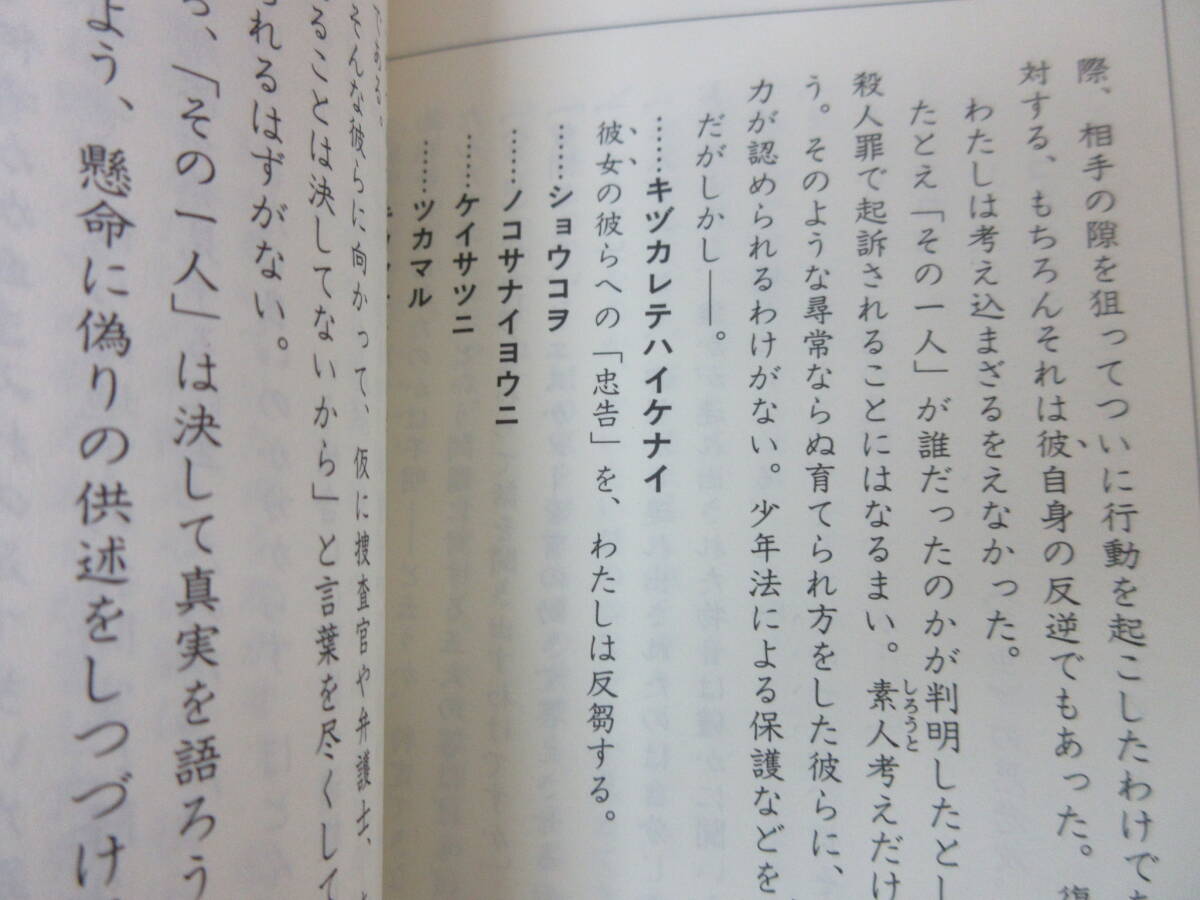 際、相手の隙を狙ってついに行動を起こしたわけであ
対する、もちろんそれは彼自身の反逆でもあった。復
わたしは考え込まざるをえなかった。
たとえ「その一人」が誰だったのかが判明したとし
殺人罪で起訴されることにはなるまい。素人考えだけ
しろうと
う。そのような尋常ならぬ育てられ方をした彼らに、
力が認められるわけがない。少年法による保護などを
だがしかし――。
……キヅカレテハイケナイ
彼女の彼らへの「忠告」を、わたしは反芻する。
……ショウコヲ
……ノコサナイヨウニ
……ケイサツニ
……ツカマル
である。
そんな彼らに向かって、仮に捜査官や弁護士、
ることは決してないから」と言葉を尽くして
れるはずがない。
、「その一人」は決して真実を語ろう
よう、懸命に偽りの供述をしつづけ